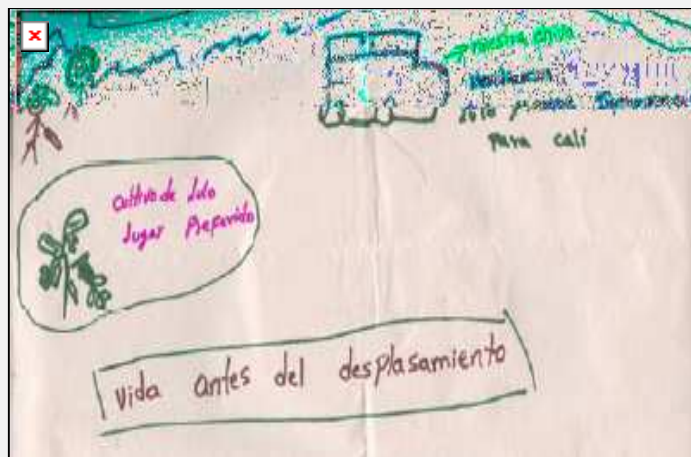 nuestra chiva
lulo
para cali
cultivo de lulo
lugar Preferido
vida antes del desplasamiento